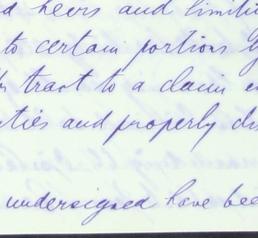 heirs and limiti
to certain portions
tract to a claim
ties and properly di
undersigned have bee